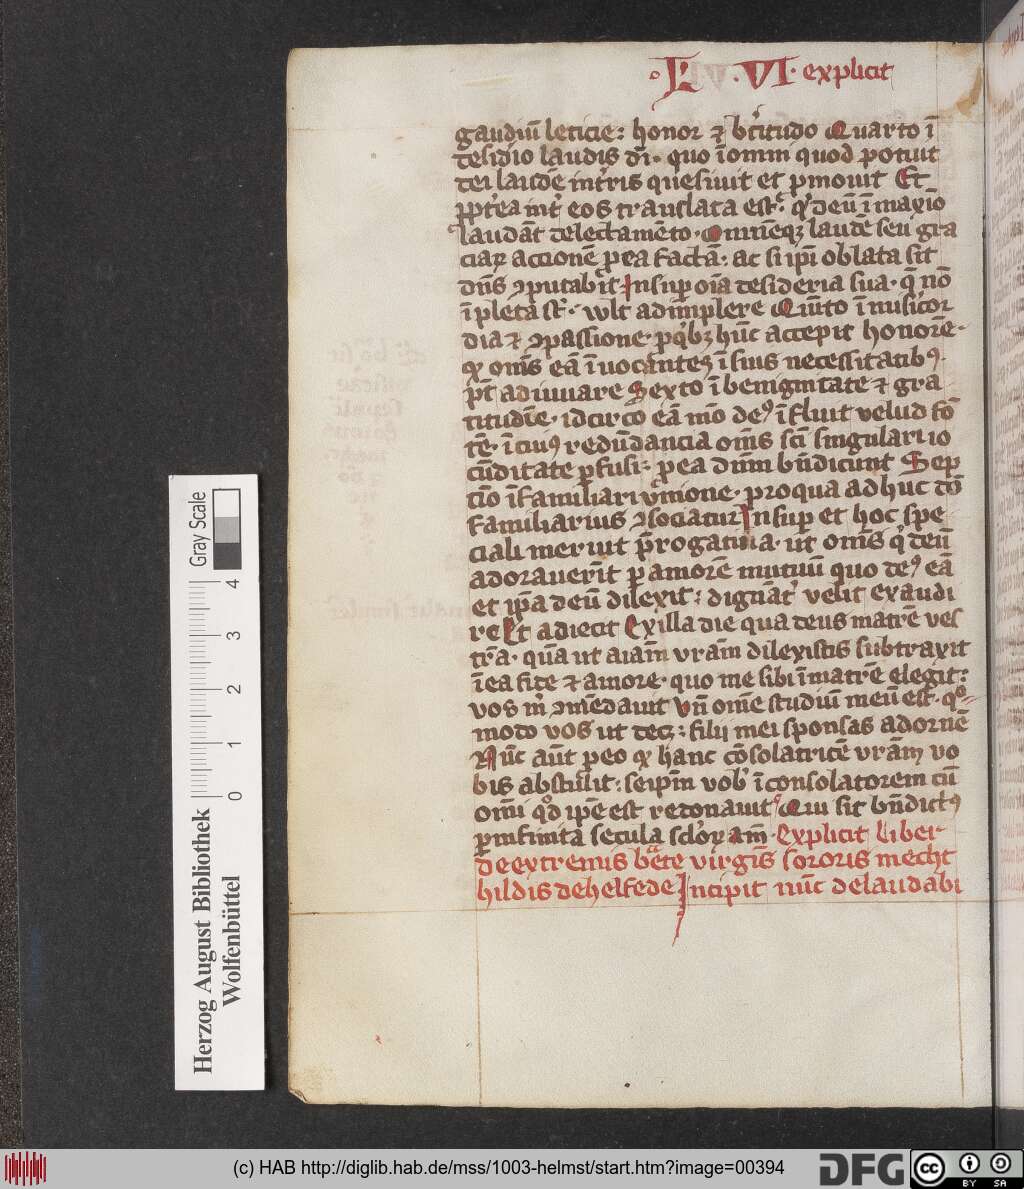 L VI · explicit
gaudiū leticie: honor ⁊ btītudo Quarto ī
desid'io laudis dī · quo ī omni quod potuit
dei laudē īnt'ris quesiuit et pmouit Et
ppt'ea int' eos translata est · q' deū ī maxīo
laudāt delectamēto · Omnēqꝫ laudē seu gra
ciaꝝ accionē p ea factā · ac si ipī oblata sit
dn̄s ꝯputabit · Insup oīa desideria sua · q̄ nō
īpleta st̄ · wlt adimplere Quīto ī mis'icor
dia ⁊ ꝯpassione · p q'bꝫ hūc accepit honorē ·
qꝫ om̄s eā īuocantes ī suis necessitatibꝰ ·
pt̄ adiuuare Sexto ī benignitate ⁊ gra
titudīe · idcirco eā mō deꝰ īfluit velud fō
tē · ī ciuiꝰ redūdancia om̄s sc̄i singulari io
cūditate pfusi: p ea dn̄m bn̄dicunt Sep
tīo ī familiari vnione · pro qua adhuc dō
familiarius ꝯsociatur Insup et hoc spe
ciali meruit p̄rogatiua · ut om̄s q' deū
adorauerīt p amorē mutuū quo deꝰ eā
et ip̄a deū dilexit: dignāt' velit exaudi
re Et adiecit Ex illa die qua deus matrē ves
trā · quā ut aīam vr̄am dilexistis subtraxit
ī ea fide ⁊ amore · quo me sibi ī matrē elegit:
vos m' ꝯmēdauit Vn̄ om̄e studiū meū est · qº-
modo vos ut dec;: filii mei sponsas adornē
Nūc aūt p eo qꝫ hanc cōsolatricē vr̄am vo
bis abstulit: seip̄m vob' ī consolatorem cū
omī qd' ip̄e est redonauit Qui sit bn̄dictꝰ
p infinita secula sc̄lorꝝ am̄ · Explicit Liber
de extremis bāte virgīs sororis mecht
hildis de helfede Incipit nūc de laudabi
Herzog August Bibliothek
Wolfenbüttel
0 1 2 3 4
Gray Scale
(c) HAB http://diglib.hab.de/mss/1003-helmst/start.htm?image=00394
DFG
cc BY SA